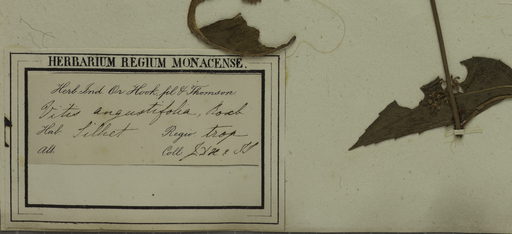 HERBARIUM REGIUM MONACENSE.
Herb. Ind. Or. Hook. fil. & Thomson
Vitis angustifolia, Roxb
Hab. Silhet Regio trop
Alt. Coll. J.D.H. & T.T.